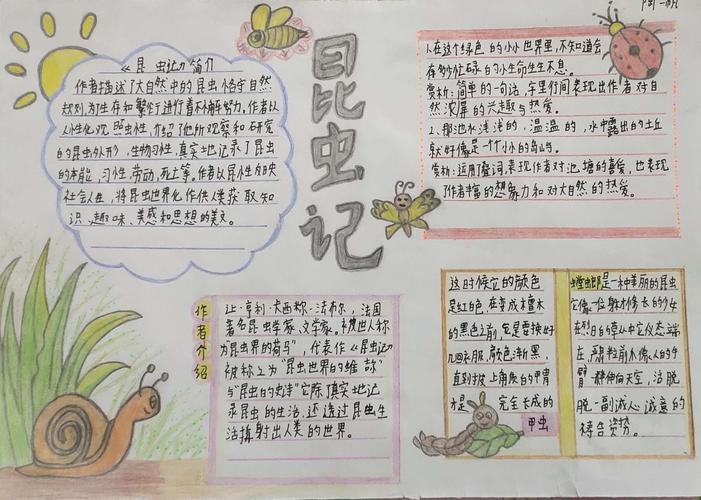 昆虫记
《昆虫记》简介
作者描述了大自然中的昆虫恪守自然
规则,为生存和繁衍进行着不懈努力,作者以
人性化观照虫性,介绍了他所观察和研究
的昆虫外形,生物习性,真实地记录了昆虫
的本能,习性,劳动,死亡等,作者以昆性反映
社会人生,将昆虫世界化作供人类获取知
识,趣味,美感和思想的美文。
1.在这个绿色的小小世界里,不知道会
存多少忙碌的小生命生生不息。
赏析:简单的一句话,字里行间表现出作者对自
然浓厚的兴趣与热爱。
2、那池水浅浅的,温温的,水中露出的土丘
就好像是一个小小的岛屿。
赏析:运用叠词,表现作者对池塘的喜爱,也表现
了作者丰富的想象力和对大自然的热爱。
作者介绍
让·亨利·卡西米尔·法布尔,法国
著名昆虫学家,文学家。被世人称
为"昆虫界的荷马",代表作《昆虫记》
被称之为"昆虫世界的维
与"昆虫的史诗"它除了真实地记
录昆虫的生活,还透过昆虫生
活折射出人类的世界。
这时候它的颜色
是红的色,在变成檀木
的黑色之前,它是要换好
几回衣服,颜色渐黑,
直到披上角质的甲胄
才是 完全长成的
甲虫
螳螂是一种美丽的昆虫
它像一位身材修长的少女
在烈日的草丛中它仪态端
庄,前腿像人的手
臂一样伸向天空,活脱
脱一副诚心诚意的
祷告姿势。